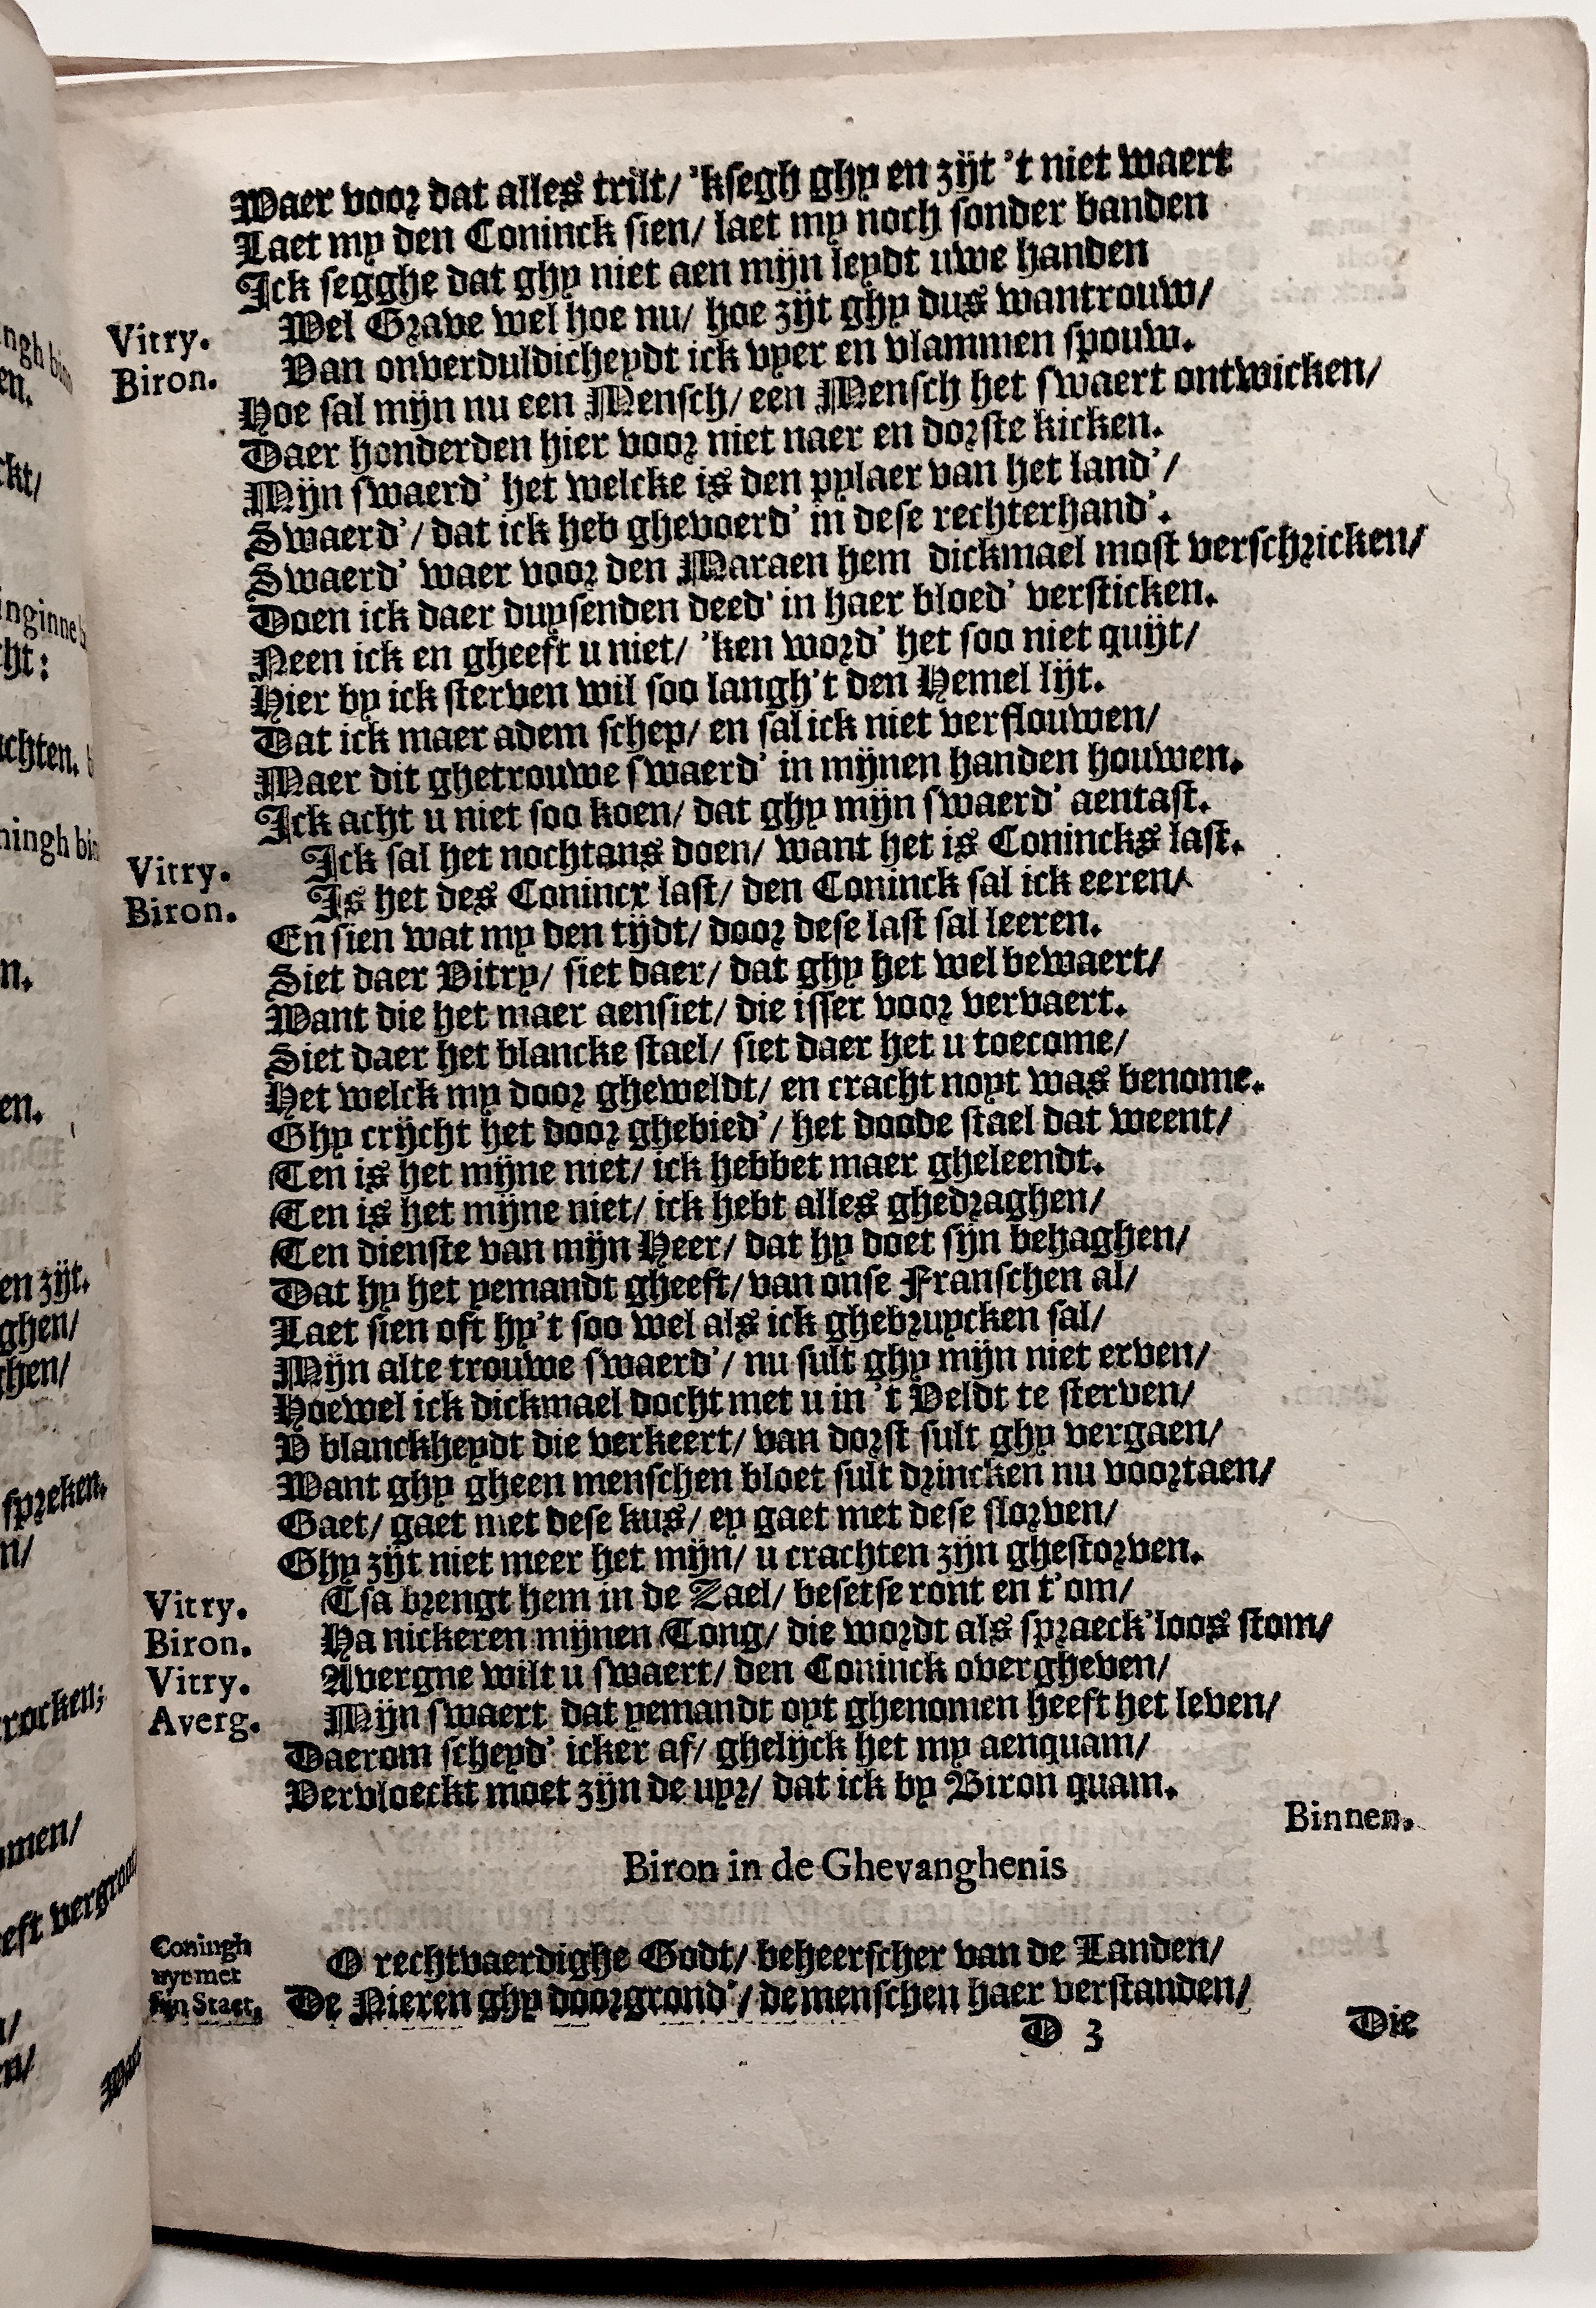 Waer voor dat alles trilt/ 'ksegh ghy en zijt 't niet waert
Laet my den Coninck sien/ laet my noch sonder banden
Ick segghe dat ghy niet aen mijn leydt uwe handen
Vitry. Wel Grave wel hoe nu/ hoe zijt ghy dus wantrouw/
Biron. Van onverduldicheydt ick vyer en vlammen spouw.
Hoe sal mijn nu een Mensch/ een Mensch het swaert ontwicken/
Daer honderden hier voor niet naer en dorste kicken.
Mijn swaerd' het welcke is den pylaer van het land'/
Swaerd'/ dat ick heb ghevoerd' in dese rechterhand'.
Swaerd' waer voor den Maraen hem dickmael most verschricken/
Doen ick daer duysenden deed' in haer bloed' versticken.
Neen ick en gheeft u niet/ 'ken word' het soo niet quijt/
Hier by ick sterven wil soo langh't den Hemel lijt.
Dat ick maer adem schep/ en sal ick niet verflouwen/
Maer dit ghetrouwe swaerd' in mijnen handen houwen.
Ick acht u niet soo koen/ dat ghy mijn swaerd' aentast.
Vitry. Ick sal het nochtans doen/ want het is Conincks last.
Biron. Is het des Conincx last/ den Coninck sal ick eeren/
En sien wat my den tijdt/ door dese last sal leeren.
Siet daer Vitry/ siet daer/ dat ghy het wel bewaert/
Want die het maer aensiet/ die isser voor vervaert.
Siet daer het blancke stael/ siet daer het u toecome/
Het welck my door gheweldt/ en cracht noyt was benome.
Ghy crijcht het door ghebied'/ het doode stael dat weent/
Ten is het mijne niet/ ick hebbet maer gheleendt.
Ten is het mijne niet/ ick hebt alles ghedraghen/
Ten dienste van mijn Heer/ dat hy doet sijn behaghen/
Dat hy het yemandt gheeft/ van onse Franschen al/
Laet sien oft hy't soo wel als ick ghebruycken sal/
Mijn alte trouwe swaerd'/ nu sult ghy mijn niet erven/
Hoewel ick dickmael docht met u in 't Veldt te sterven/
V blanckheydt die verkeert/ van dorst sult ghy vergaen/
Want ghy gheen menschen bloet sult drincken nu voortaen/
Gaet/ gaet met dese kus/ ey gaet met dese slorven/
Ghy zijt niet meer het mijn/ u crachten zijn ghestorven.
Vitry. Tsa brengt hem in de Zael/ besetse ront en t'om/
Biron. Ha nickeren mijnen Tong/ die wordt als spraeck'loos stom/
Vitry. Avergne wilt u swaert/ den Coninck overgheven/
Averg. Mijn swaert dat yemandt oyt ghenomen heeft het leven/
Daerom scheyd' icker af/ ghelijck het my aenquam/
Vervloeckt moet zijn de uyr/ dat ick by Biron quam.
Binnen.
Biron in de Ghevanghenis
Coningh
uyt met
sijn Staet.
O rechtvaerdighe Godt/ beheerscher van de Landen/
De Nieren ghy doorgrond'/ de menschen haer verstanden/
D 3 Die